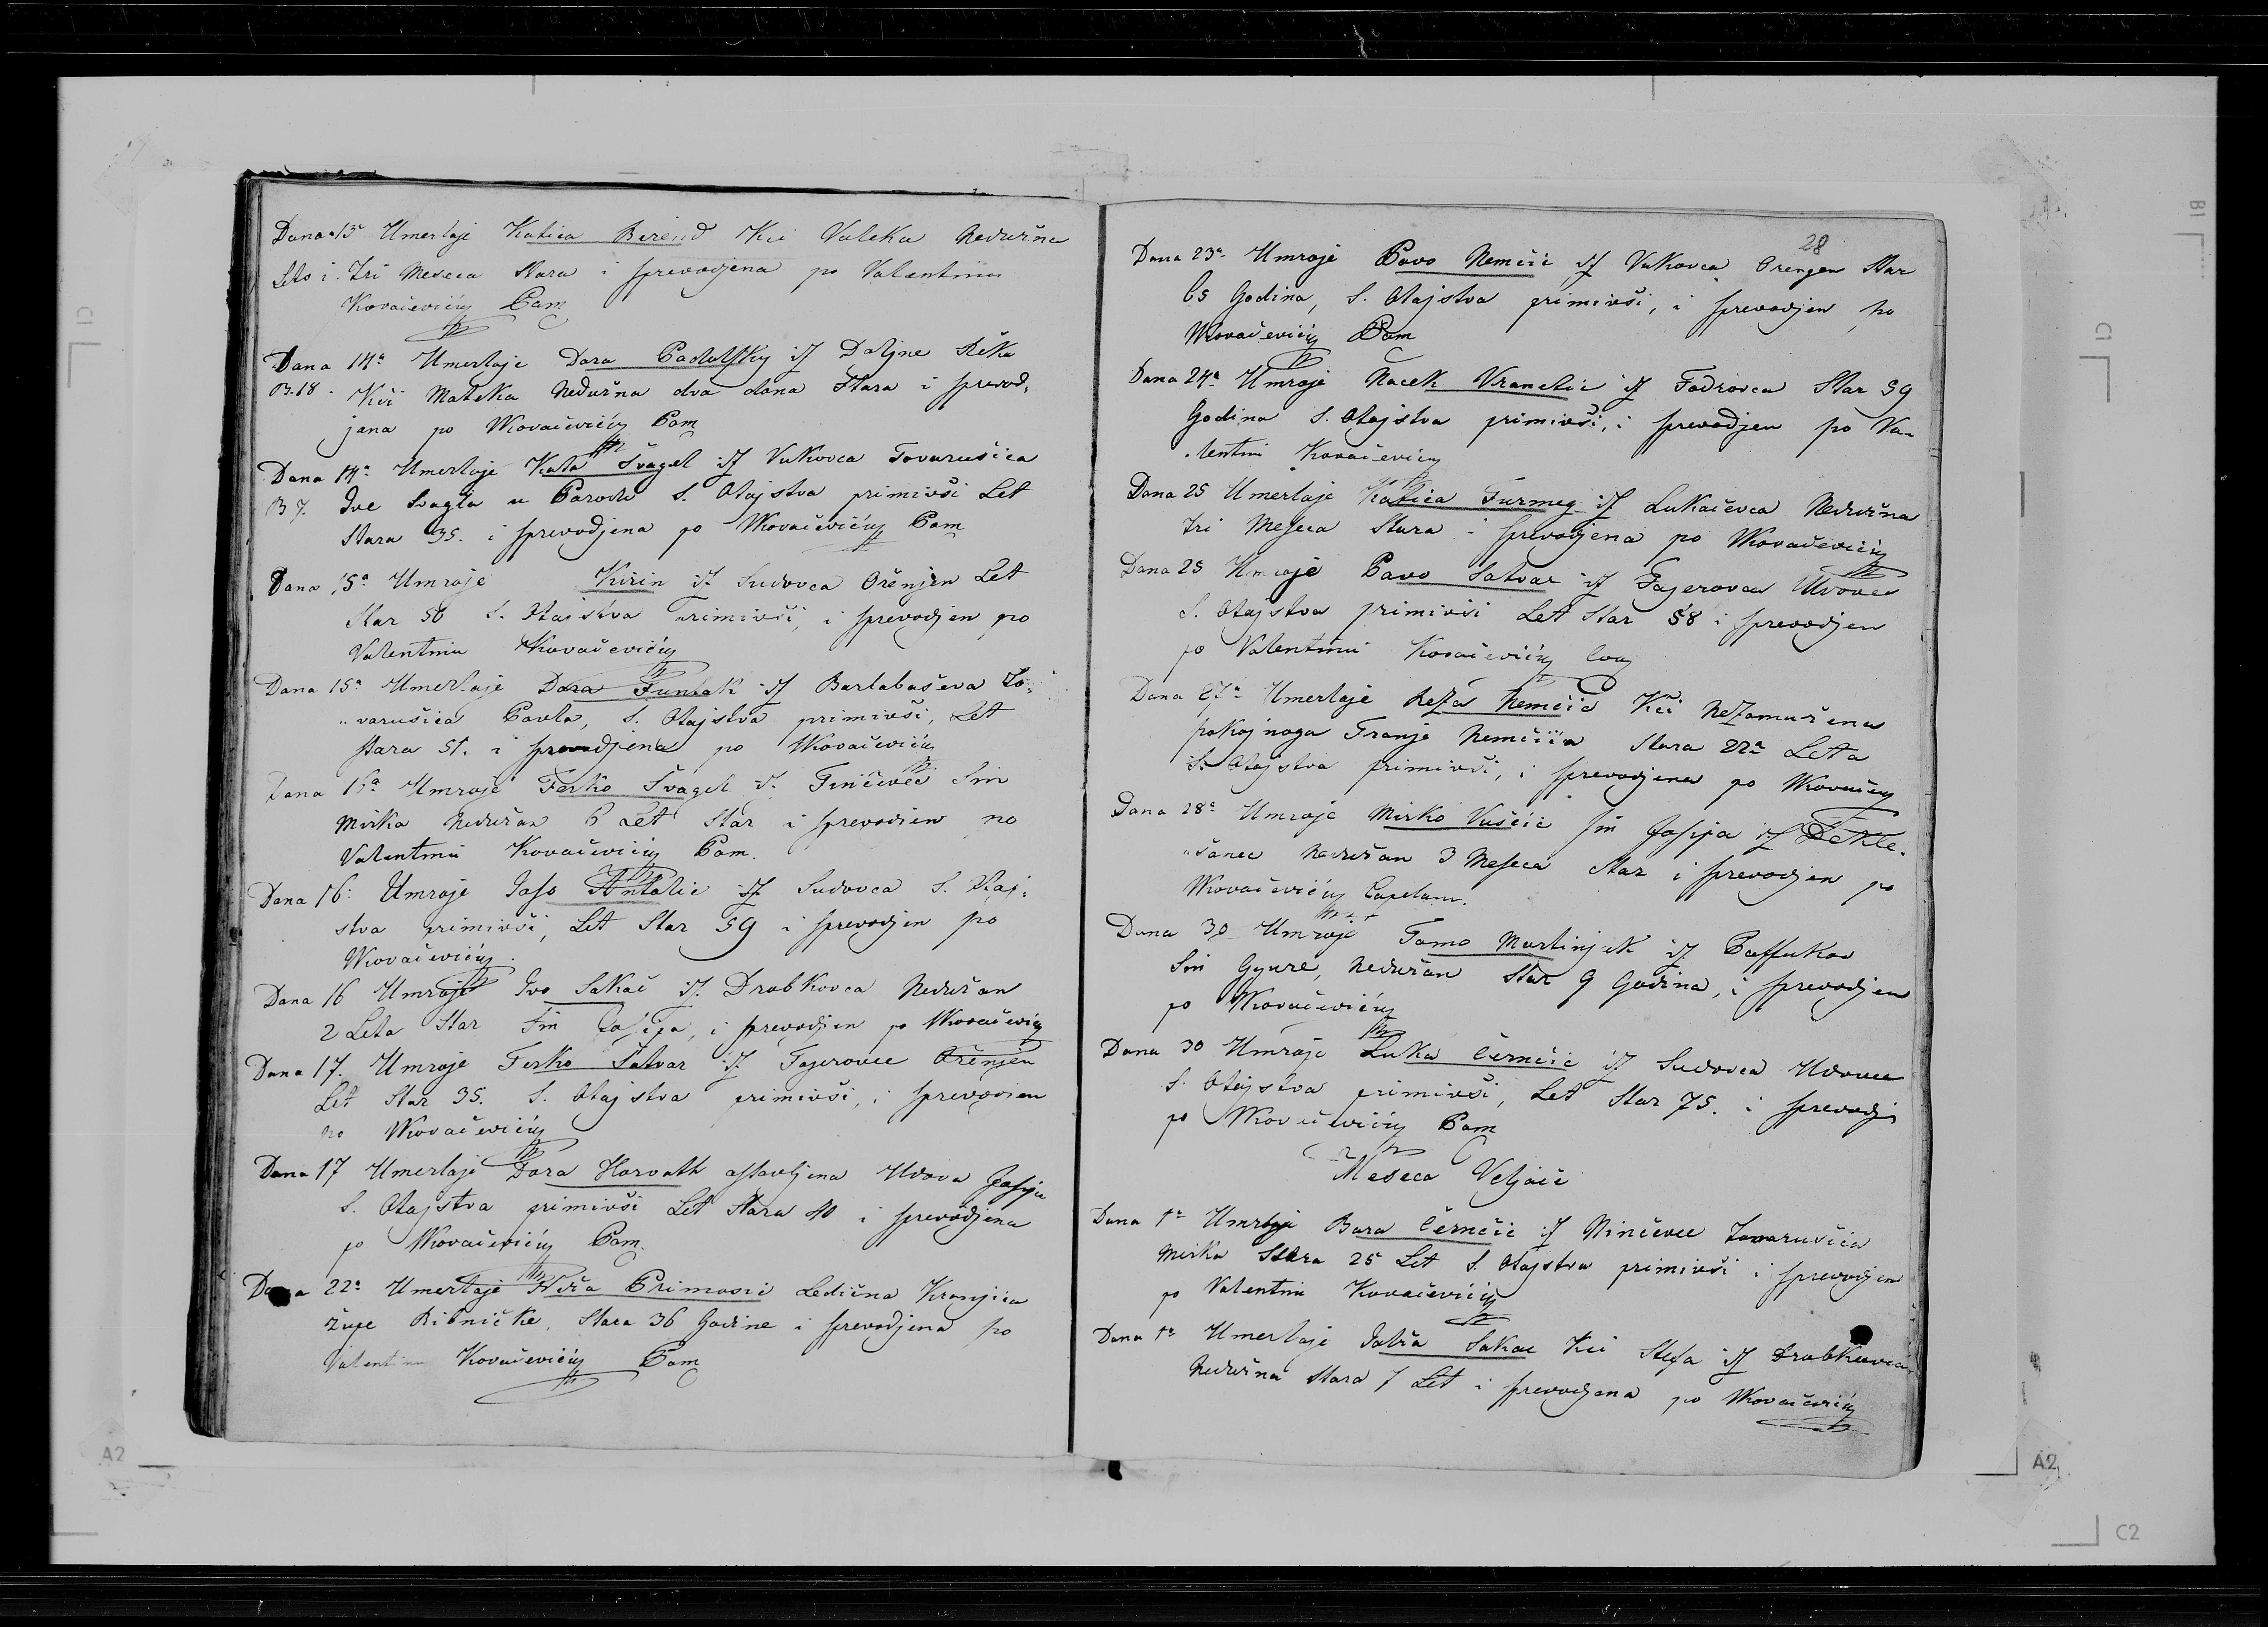 Dana 13a Umerlaje Katica Berend Kći Valeka Nedužna
Leto i. Tri Meseca Stara i sprevodjena po Valentinu
Kovačevićy Cam
Dana 14a Umerlaje Dora iz Doljne Reke
B. 18. Kći Mateka Nedužna dva dana Stara i sprevod,
jana po VKovačevićy Cam
Dana 14a Umerlaje Kata Švagel iz Vukovca Tovarušica
B 7. Ive Svagla u S. Otajstva primivši Let
Stara 35. i sprevodjena po VKovačevićy Cam
Dana 15a Umroje Kirin iz Sudovca Oženjen Let
Star 56 S. Otajstva Primivši, i sprevodjen po
Valentinu Kovačevićy
Dana 15a Umerlaje Dora Funtak iz Barlabaševa To,
„varušica Pavla, S. Otajstva primivši, Let
stara 51. i sprevodjena po VKovačevićy
Dana 16a Umroje Ferko Švagel iz Sin
Mirka Nedužan 6 Let Star i sprevodjen po
Valentinu Kovačevićy Cam.
Dana 16. Umroje Joso Antolic iz Sudovca S. Otaj,
stva primivši, Let Star 59 i sprevodjen po
VKovačevićy.
Dana 16 Umroje Ivo Sakač iz Drabkovca Nedužan
2 Leta Star Sin Josipa, i sprevodjen po VKovačevićy
Dana 17. Umroje Ferko Šatvar iz Fajerovec Oženjen
Let Star 35. S. Otajstva primivši, i sprevodjen
po VKovačevićy
Dana 17 Umerlaje Dora Horvath ostavljena Udova Josipa
S. Otajstva primivši Let Stara 40 i sprevodjena
po VKovačevićy Cam.
Dana 22a Umerlaje Primosic Ledična Kranjica
župe Ribničke, Stara 36 Godine i sprevodjena po
Valentinu Kovačevićy Cam
28
Dana 23a Umroje Pavo Nemčić iz Vukovca Star
65 Godina, S. Otajstva primivši, i sprevodjen po
VKovačevićy Cam
Dana 24a Umroje Nacek Vranelic iz Fodrovca Star 59
Godina S. Otajstva primivši, i sprevodjen po Va-
lentinu Kovačevićy
Dana 25 Umerlaje Katica Furmeg iz Lukačevca Nedužna
tri Meseca Stara i sprevodjena po VKovačevićy
Dana 25 Umroje Pavo Satvar iz Fajerovca Udovec
S. Otajstva primivši Let Star 58 i sprevodjen
po Valentinu Kovačevićy
Dana 27a Umerlaje Reza Nemčić Kći Nezamužena
pokojnoga Franje Nemčića Stara 22a Leta
S. Otajstva primivši, i sprevodjena po VKovačevićy
Dana 28a Umroje Mirko Vuščić sin Josipa iz Dekle-
„šanec Nedužan 3 Meseca Star i sprevodjen po
VKovačevićy Capelanu.
Dana 30 Umroje Tomo Martinjak iz
Sin Gyure, Nedužan Star 9 Godina, i sprevodjen
po VKovačevićy
Dana 30 Umroje Luka Černčić iz Sudovca Udovec
S. Otajstva primivši, Let Star 75. i sprevodj
po VKovačevićy Cam
Meseca Veljače
Dana 1a Umrlaje Bara Černčić iz Ninčevec Tovarušica
Mirka Stara 25 Let S. Otajstva primivši i sprevodjen
po Valentinu Kovačevićy
Dana 1a Umerlaje Jalža Sakac Kći Stefa iz Drabkovca
Nedužna Stara 7 Let i sprevodjena po VKovačevićy
B1
C1
C1
A2
A2
C2